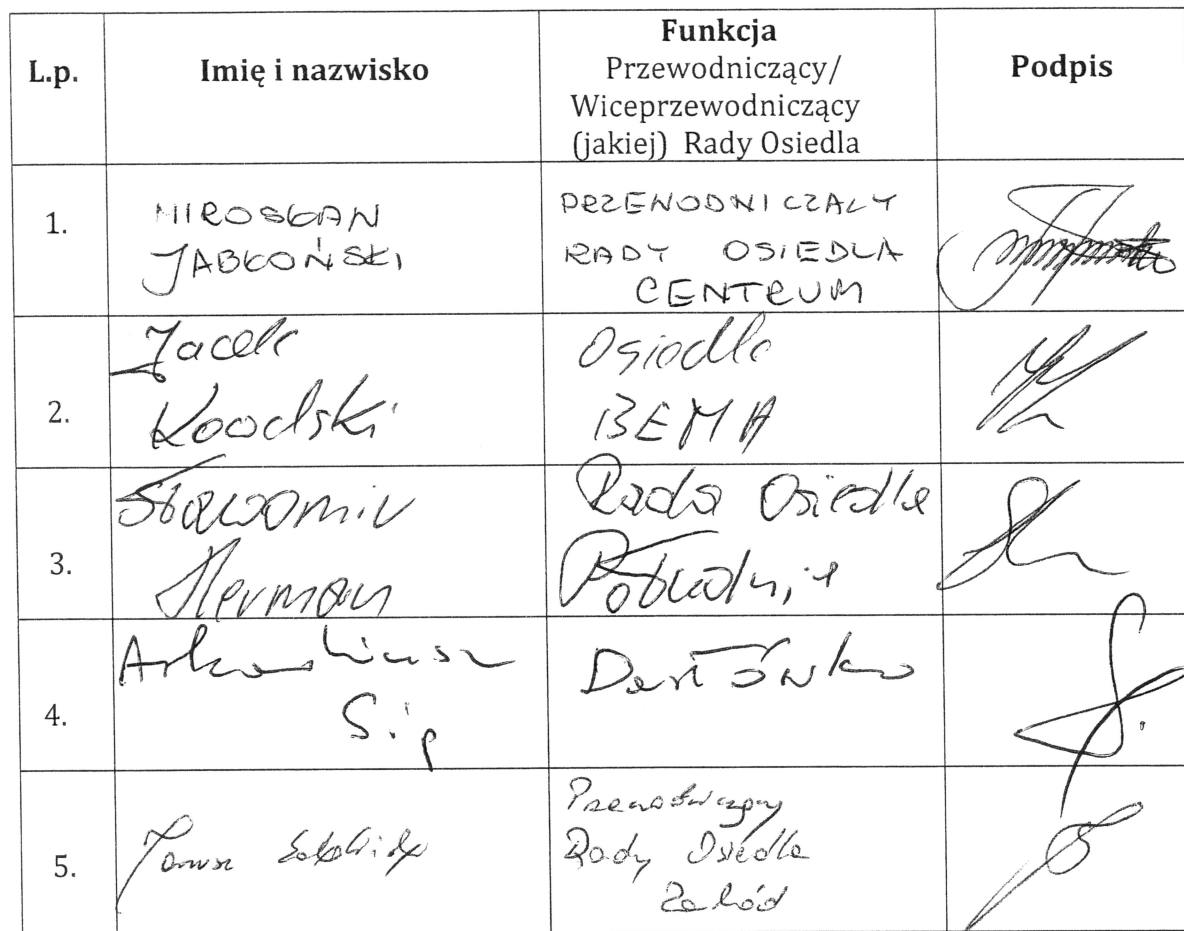 L.p.
Imię i nazwisko
Funkcja
Przewodniczący/
Wiceprzewodniczący
(jakiej) Rady Osiedla
Podpis
1.
MIROSŁAW
JABŁOŃSKI
PRZEWODNICZĄCY
RADY OSIEDLA
CENTRUM
2.
Jacek
Osiedle
BEMA
3.
Sławomir
Herman
Rada Osiedla
Południe
4.
Arkadiusz
Sip
Darłówko
5.
Janusz
Przewodniczący
Rady Osiedla
Zachód